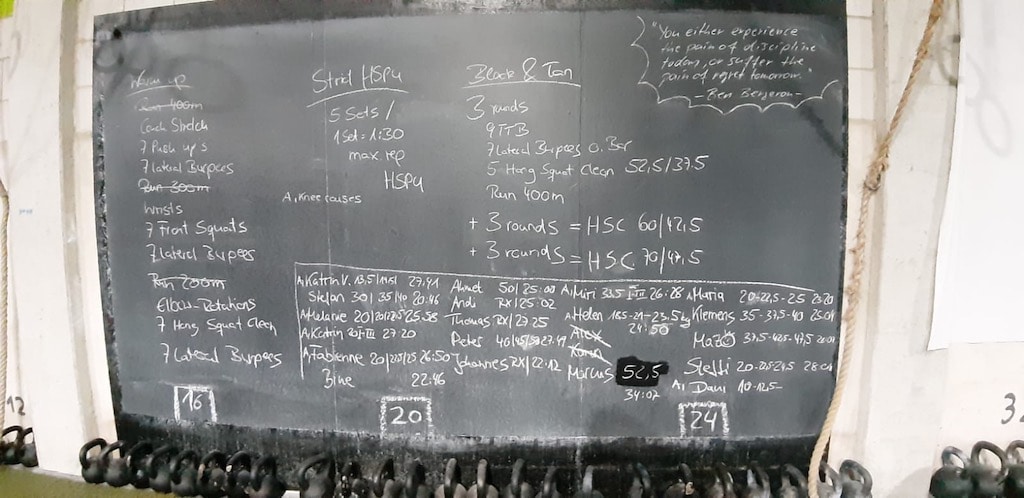 "You either experience
the pain of discipline
today, or suffer the
pain of regret tomorrow."
- Ben Bergeron -
Warm up
Run 400m
Coach Stretch
7 Push ups
7 lateral Burpees
Run 300m
Wrists
7 Front Squats
7 lateral Burpees
Run 200m
Elbow-Rotations
7 Hang Squat Clean
7 Lateral Burpees
Strict HSPU
5 Sets /
1 Set = 1:30
max. rep
HSPU
A, Knee raises
Black & Tan
3 rounds
9 TTB
7 lateral Burpees o. Bar
5 Hang Squat Clean 52,5/37,5
Run 400m
+ 3 rounds = HSC 60/42,5
+ 3 rounds = HSC 70/47,5
A, Katrin V. 27:41
Stefan 30/35/40 20:46
A, Melanie 25:58
A, Katrin 27:20
A, Fabienne 26:50
Bine 22:46
Ahmet 50/25:00
Andi RX/25:02
Thomas RX/27:25
Peter 27:19
Johannes RX/22:12
A, Miri 26:28
A, Helen 18,5-21-23,5 kg
24:50
Alex
Karen
Marcus 52,5
34:07
A, Maria 20-22,5-25
Klemens 35-37,5-40 25:04
37,5-42,5-47,5
Steffi 28:04
A, Dani 10-12,5-
16
20
24
12
3